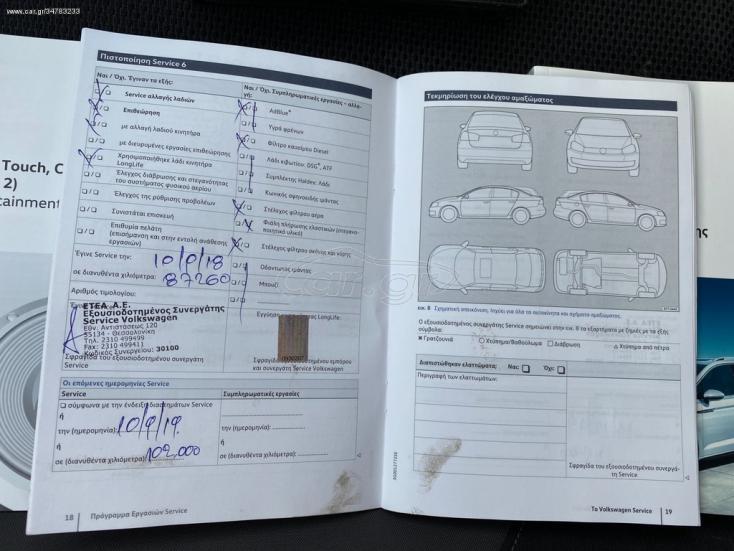 www.car.gr/34783233
Πιστοποίηση Service 6
Ναι / Όχι. Έγιναν τα εξής:
Service αλλαγής λαδιών
Επιθεώρηση
με αλλαγή λαδιού κινητήρα
με διευρυμένες εργασίες επιθεώρησης
Χρησιμοποιήθηκε λάδι κινητήρα
LongLife
Έλεγχος διάβρωσης και στεγανότητας
του συστήματος φυσικού αερίου
Έλεγχος της ρύθμισης προβολέων
Συνιστάται επισκευή
Επιθυμία πελάτη
(επισήμανση και στην εντολή ανάθεσης
εργασιών)
Έγινε Service την: 10/9/18
σε διανυθέντα χιλιόμετρα: 87260
Αριθμός τιμολογίου:
ΕΤΕΛ Α.Ε.
Εξουσιοδοτημένος Συνεργάτης
Service Volkswagen
Εθν. Αντιστάσεως 120
55134 - Θεσσαλονίκη
Τηλ. 2310 499499
Fax: 2310 499411
Κωδικός Συνεργείου: 30100
Σφραγίδα του εξουσιοδοτημένου συνεργάτη
Service
Ναι / Όχι. Συμπληρωματικές εργασίες – αλλα-
γή:
AdBlue®
Υγρό φρένων
Φίλτρο καυσίμου Diesel
Λάδι κιβωτίου: DSG®, ATF
Συμπλέκτης Haldex: Λάδι
Κωνικός αφηνοειδής ιμάντας
Στέλεχος φίλτρου αέρα
Φιάλη πλήρωσης ελαστικών (στεγανο-
ποιητικό υλικό)
Στέλεχος φίλτρου σκόνης και γύρης
Οδοντωτός ιμάντας
Μπουζί
LongLife:
εμπόρου
και συνεργάτη Service Volkswagen
Οι επόμενες ημερομηνίες Service
Service
Συμπληρωματικές εργασίες
σύμφωνα με την ένδειξη διαστημάτων Service
ή
την (ημερομηνία): 10/9/19.
ή
σε (διανυθέντα χιλιόμετρα): 102.000
την (ημερομηνία):
ή
σε (διανυθέντα χιλιόμετρα):
18 Πρόγραμμα Εργασιών Service
Τεκμηρίωση του ελέγχου αμαξώματος
εικ. 8 Σχηματική απεικόνιση. Ισχύει για όλα τα αυτοκίνητα και σχήματα αμαξώματος.
Ο εξουσιοδοτημένος συνεργάτης Service σημειώνει στην εικ. 8 τα εξαρτήματα με ζημιές με τα εξής
σύμβολα:
Γρατζουνιά Χτύπημα/Βαθούλωμα Διάβρωση Χτύπημα από πέτρα
Διαπιστώθηκαν ελαττώματα; Ναι: Όχι:
Περιγραφή των ελαττωμάτων:
Σφραγίδα του εξουσιοδοτημένου συνεργά-
τη Service
Το Volkswagen Service 19
Touch, C
2)
tainment
car.gr